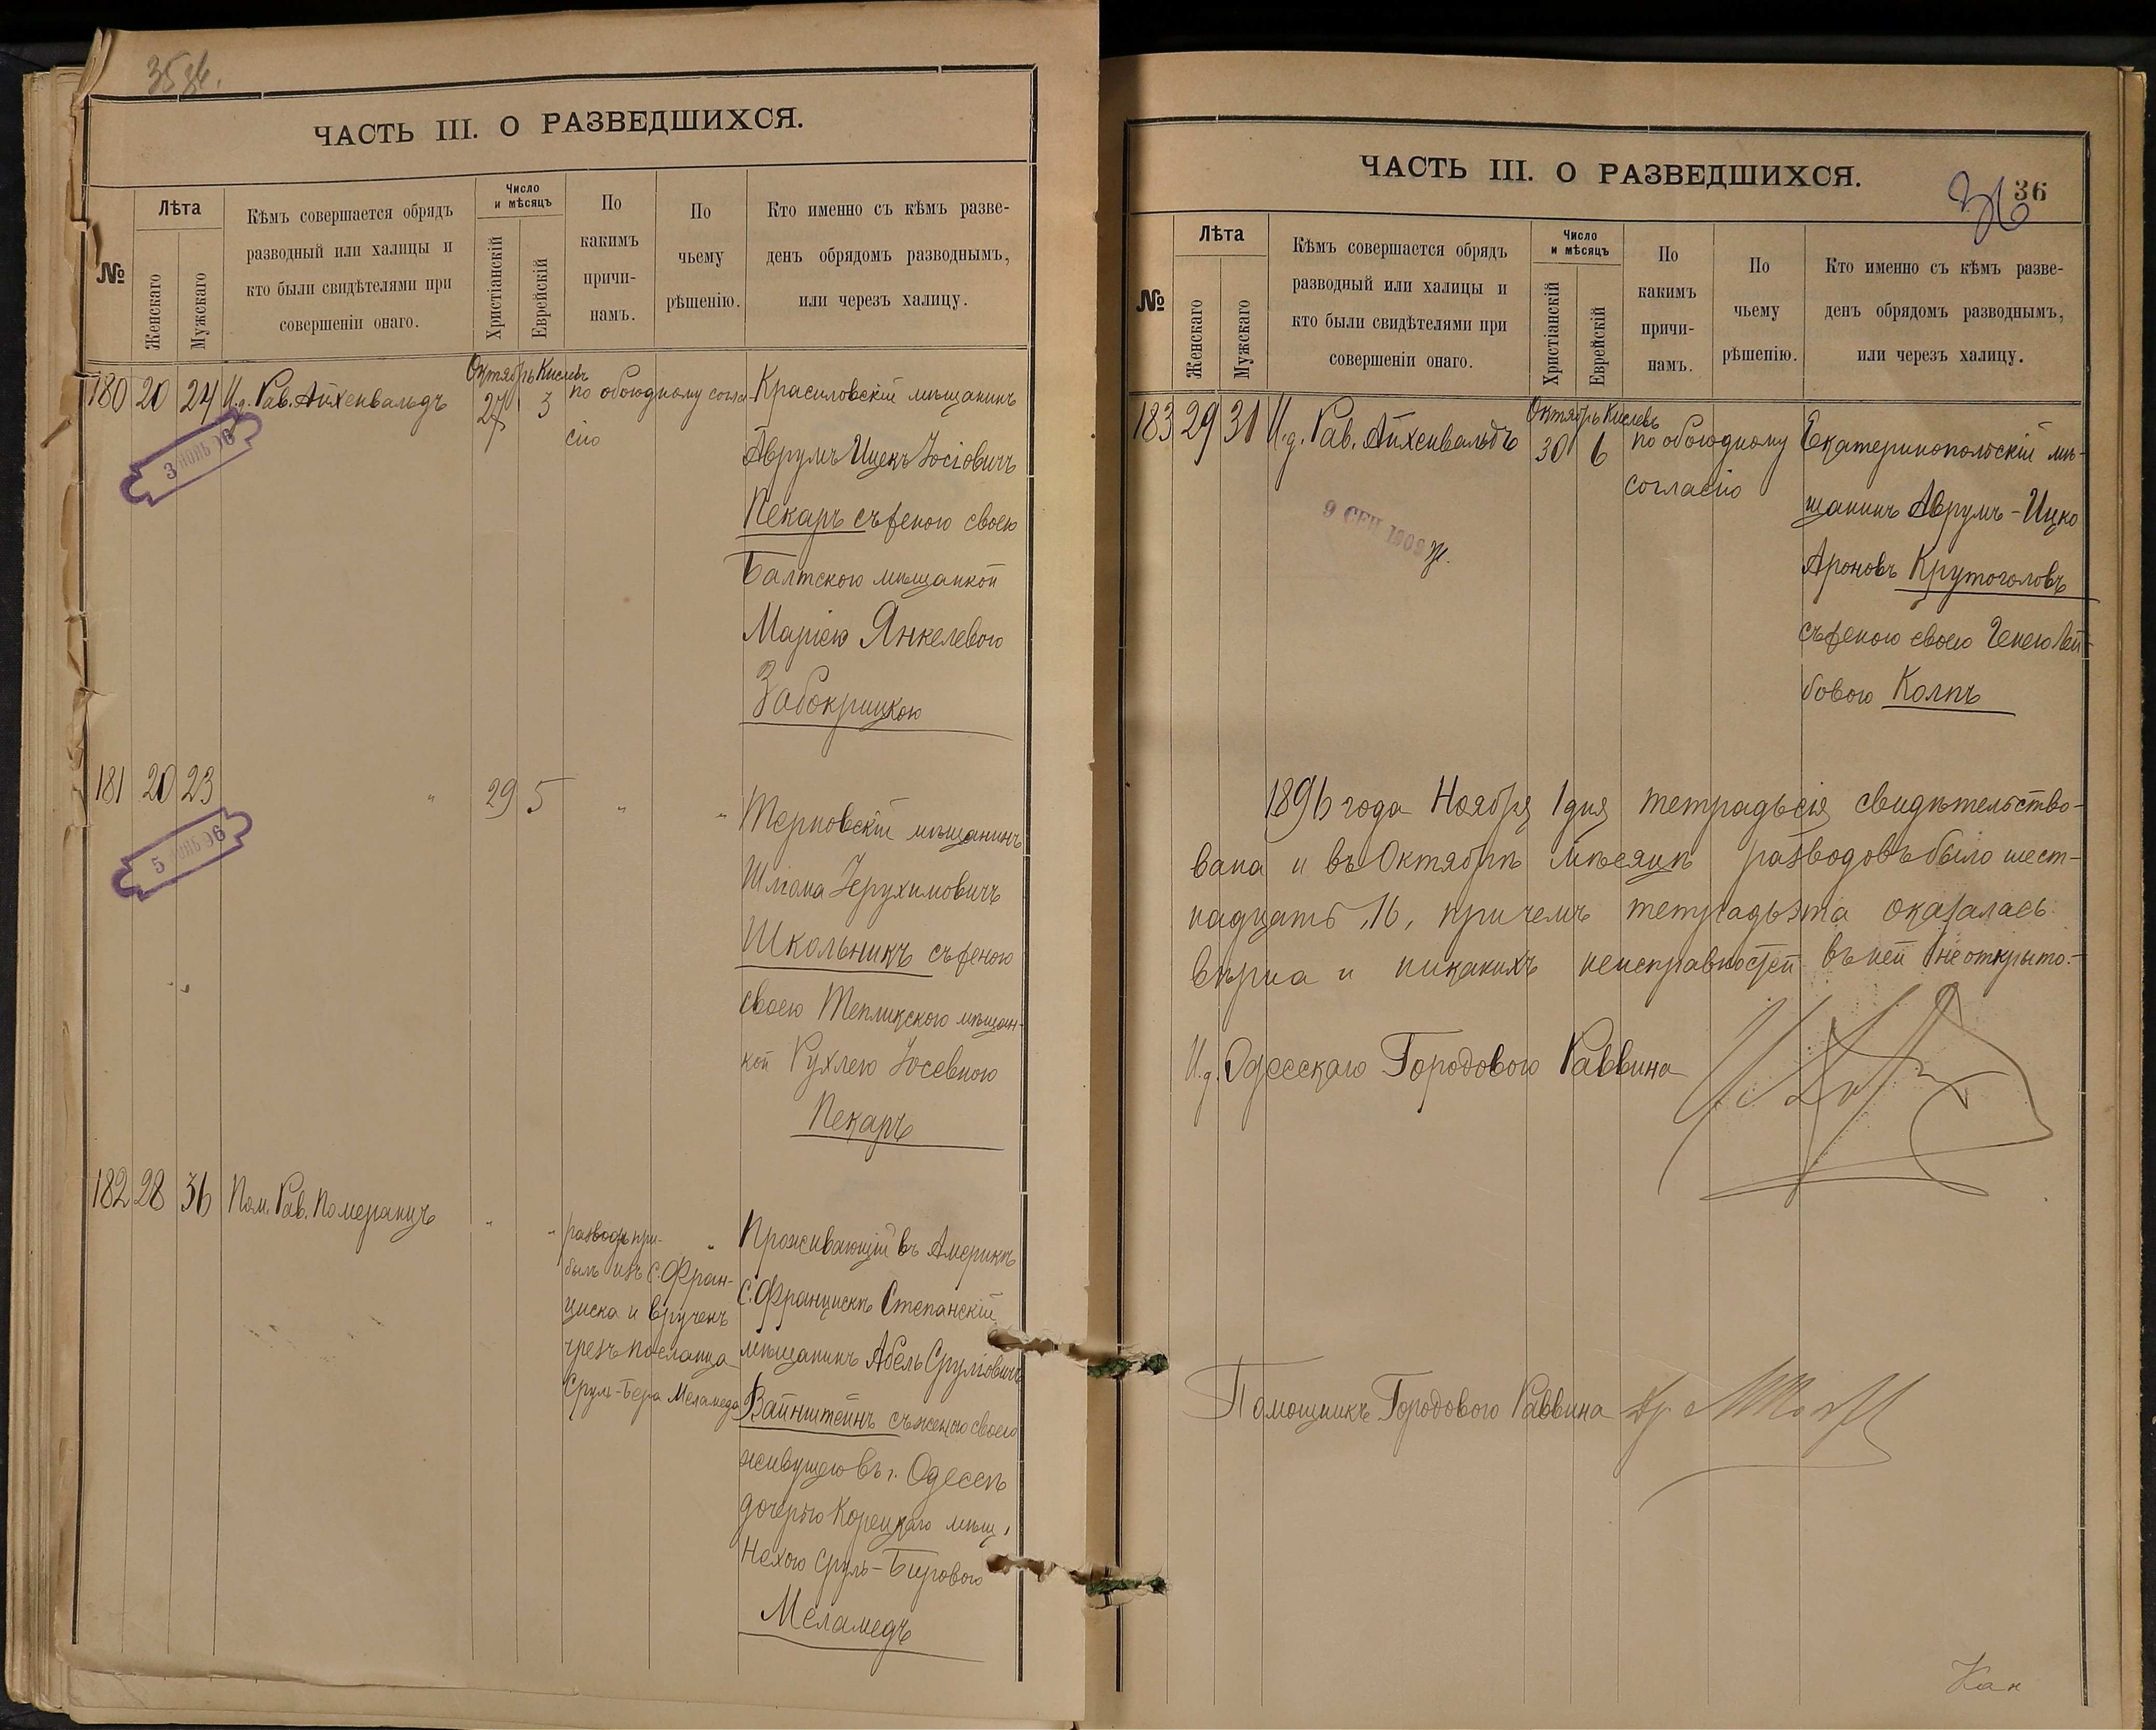 35 36.
ЧАСТЬ III. О РАЗВЕДШИХСЯ.
№
Лѣта
Женскаго
Мужскаго
Кѣмъ совершается обрядъ
разводный или халицы и
кто были свидѣтелями при
совершеніи онаго.
Число
и мѣсяцъ
Христіанскій
Еврейскій
По
какимъ
причи-
намъ.
По
чьему
рѣшенію.
Кто именно съ кѣмъ разве-
денъ обрядомъ разводнымъ,
или черезъ халицу.
Октябрь Кислевъ
180 20 24 И.д. Рав. Айхенвальдъ 27 3 по обоюдному согла-
сію
Красиловскій мѣщанинъ
Аврумъ Ицекъ Іосіовичъ
Пекаръ съ женою своею
Балтскою мѣщанкой
Маріею Янкелевою
Забокрицкою
3 ІЮНЬ 96
181 20 23 " 29 5 " "
Терновскій мѣщанинъ
Шліома Іерухимовичъ
Школьникъ съ женою
своею Теплицкою мѣщан-
кой Рухлею Іосевною
Пекаръ
5 ІЮНЬ 96
182 28 36 Пом. Рав. Померанцъ " " "
разводъ при-
былъ изъ С. Фран-
циска и врученъ
чрезъ посланца
Сруль-Бера Меламеда
Проживающій въ Америкѣ
С. Францискѣ Степанскій
мѣщанинъ Абель Сруліовичъ
Вайнштейнъ съ женою своею
живущею въ г. Одессѣ
дочерью Корецкаго мѣщ.
Нехою Сруль-Бировою
Меламедъ
ЧАСТЬ III. О РАЗВЕДШИХСЯ.
36
36
№
Лѣта
Женскаго
Мужскаго
Кѣмъ совершается обрядъ
разводный или халицы и
кто были свидѣтелями при
совершеніи онаго.
Число
и мѣсяцъ
Христіанскій
Еврейскій
По
какимъ
причи-
намъ.
По
чьему
рѣшенію.
Кто именно съ кѣмъ разве-
денъ обрядомъ разводнымъ,
или черезъ халицу.
Октябрь Кислевъ
183 29 31 И.д. Рав. Айхенвальдъ 30 6 по обоюдному
согласію
Екатеринопольскій мѣ-
щанинъ Аврумъ-Ицко
Ароновъ Крутоголовъ
съ женою своею Генею Лей-
бовою Колпъ
9 СЕН 1909
1896 года Ноября 1 дня тетрадь сія свидѣтельство-
вана и въ Октябрѣ мѣсяцѣ разводовъ было шест-
надцать, 16, причемъ тетрадь эта оказалась
вѣрна и никакихъ неисправностей въ ней не открыто.-
И.д. Одесскаго Городового Раввина
Помощникъ Городового Раввина
Кан